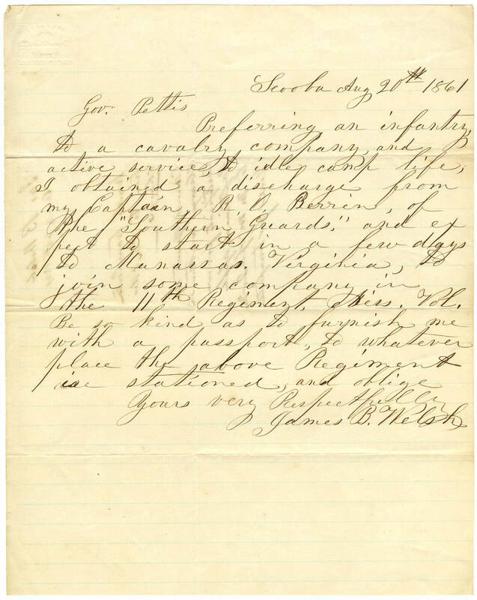 Scooba Aug 20th 1861
Gov. Pettis
Preferring an infantry,
to a cavalry company, and
active service, to idle camp life,
I obtained a discharge from
my Captain, R. O. Berren, of
the "Southern Guards," and ex
pect to start in a few days
to Manassas, Virginia, to
join some company in
the 11th Regiment, Miss. Vol.
Be so kind as to furnish me
with a passport, to whatever
place the above Regiment
is stationed, and oblige
Yours very Respectfully
James B. Welsh